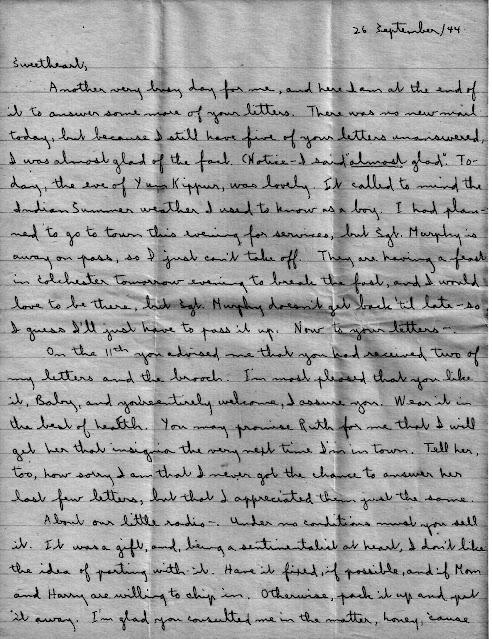 26 September/44
Sweetheart,
Another very busy day for me, and here I am at the end of
it to answer some more of your letters. There was no new mail
today, but because I still have five of your letters unanswered,
I was almost glad of the fact. (Notice - I said "almost glad". To-
day, the eve of Yum Kippur, was lovely. It called to mind the
Indian Summer weather I used to know as a boy. I had plan-
ned to go to town this evening for services, but Sgt. Murphy is
away on pass, so I just can't take off. They are having a feast
in Colchester tomorrow evening to break the fast, and I would
love to be there, but Sgt. Murphy doesn't get back 'til late - so
I guess I'll just have to pass it up. Now to your letters -.
On the 11th you advised me that you had received two of
my letters and the brooch. I'm most pleased that you like
it, Baby, and you're entirely welcome, I assure you. Wear it in
the best of health. You may promise Ruth for me that I will
get her that insignia the very next time I'm in town. Tell her,
too, how sorry I am that I never got the chance to answer her
last few letters, but that I appreciated them just the same.
About our little radio -. Under no conditions must you sell
it. It was a gift, and, being a sentimentalist at heart, I don't like
the idea of parting with it. Have it fixed, if possible, and if Mom
and Harry are willing to chip in. Otherwise, pack it up and put
it away. I'm glad you consulted me in the matter, honey, 'cause